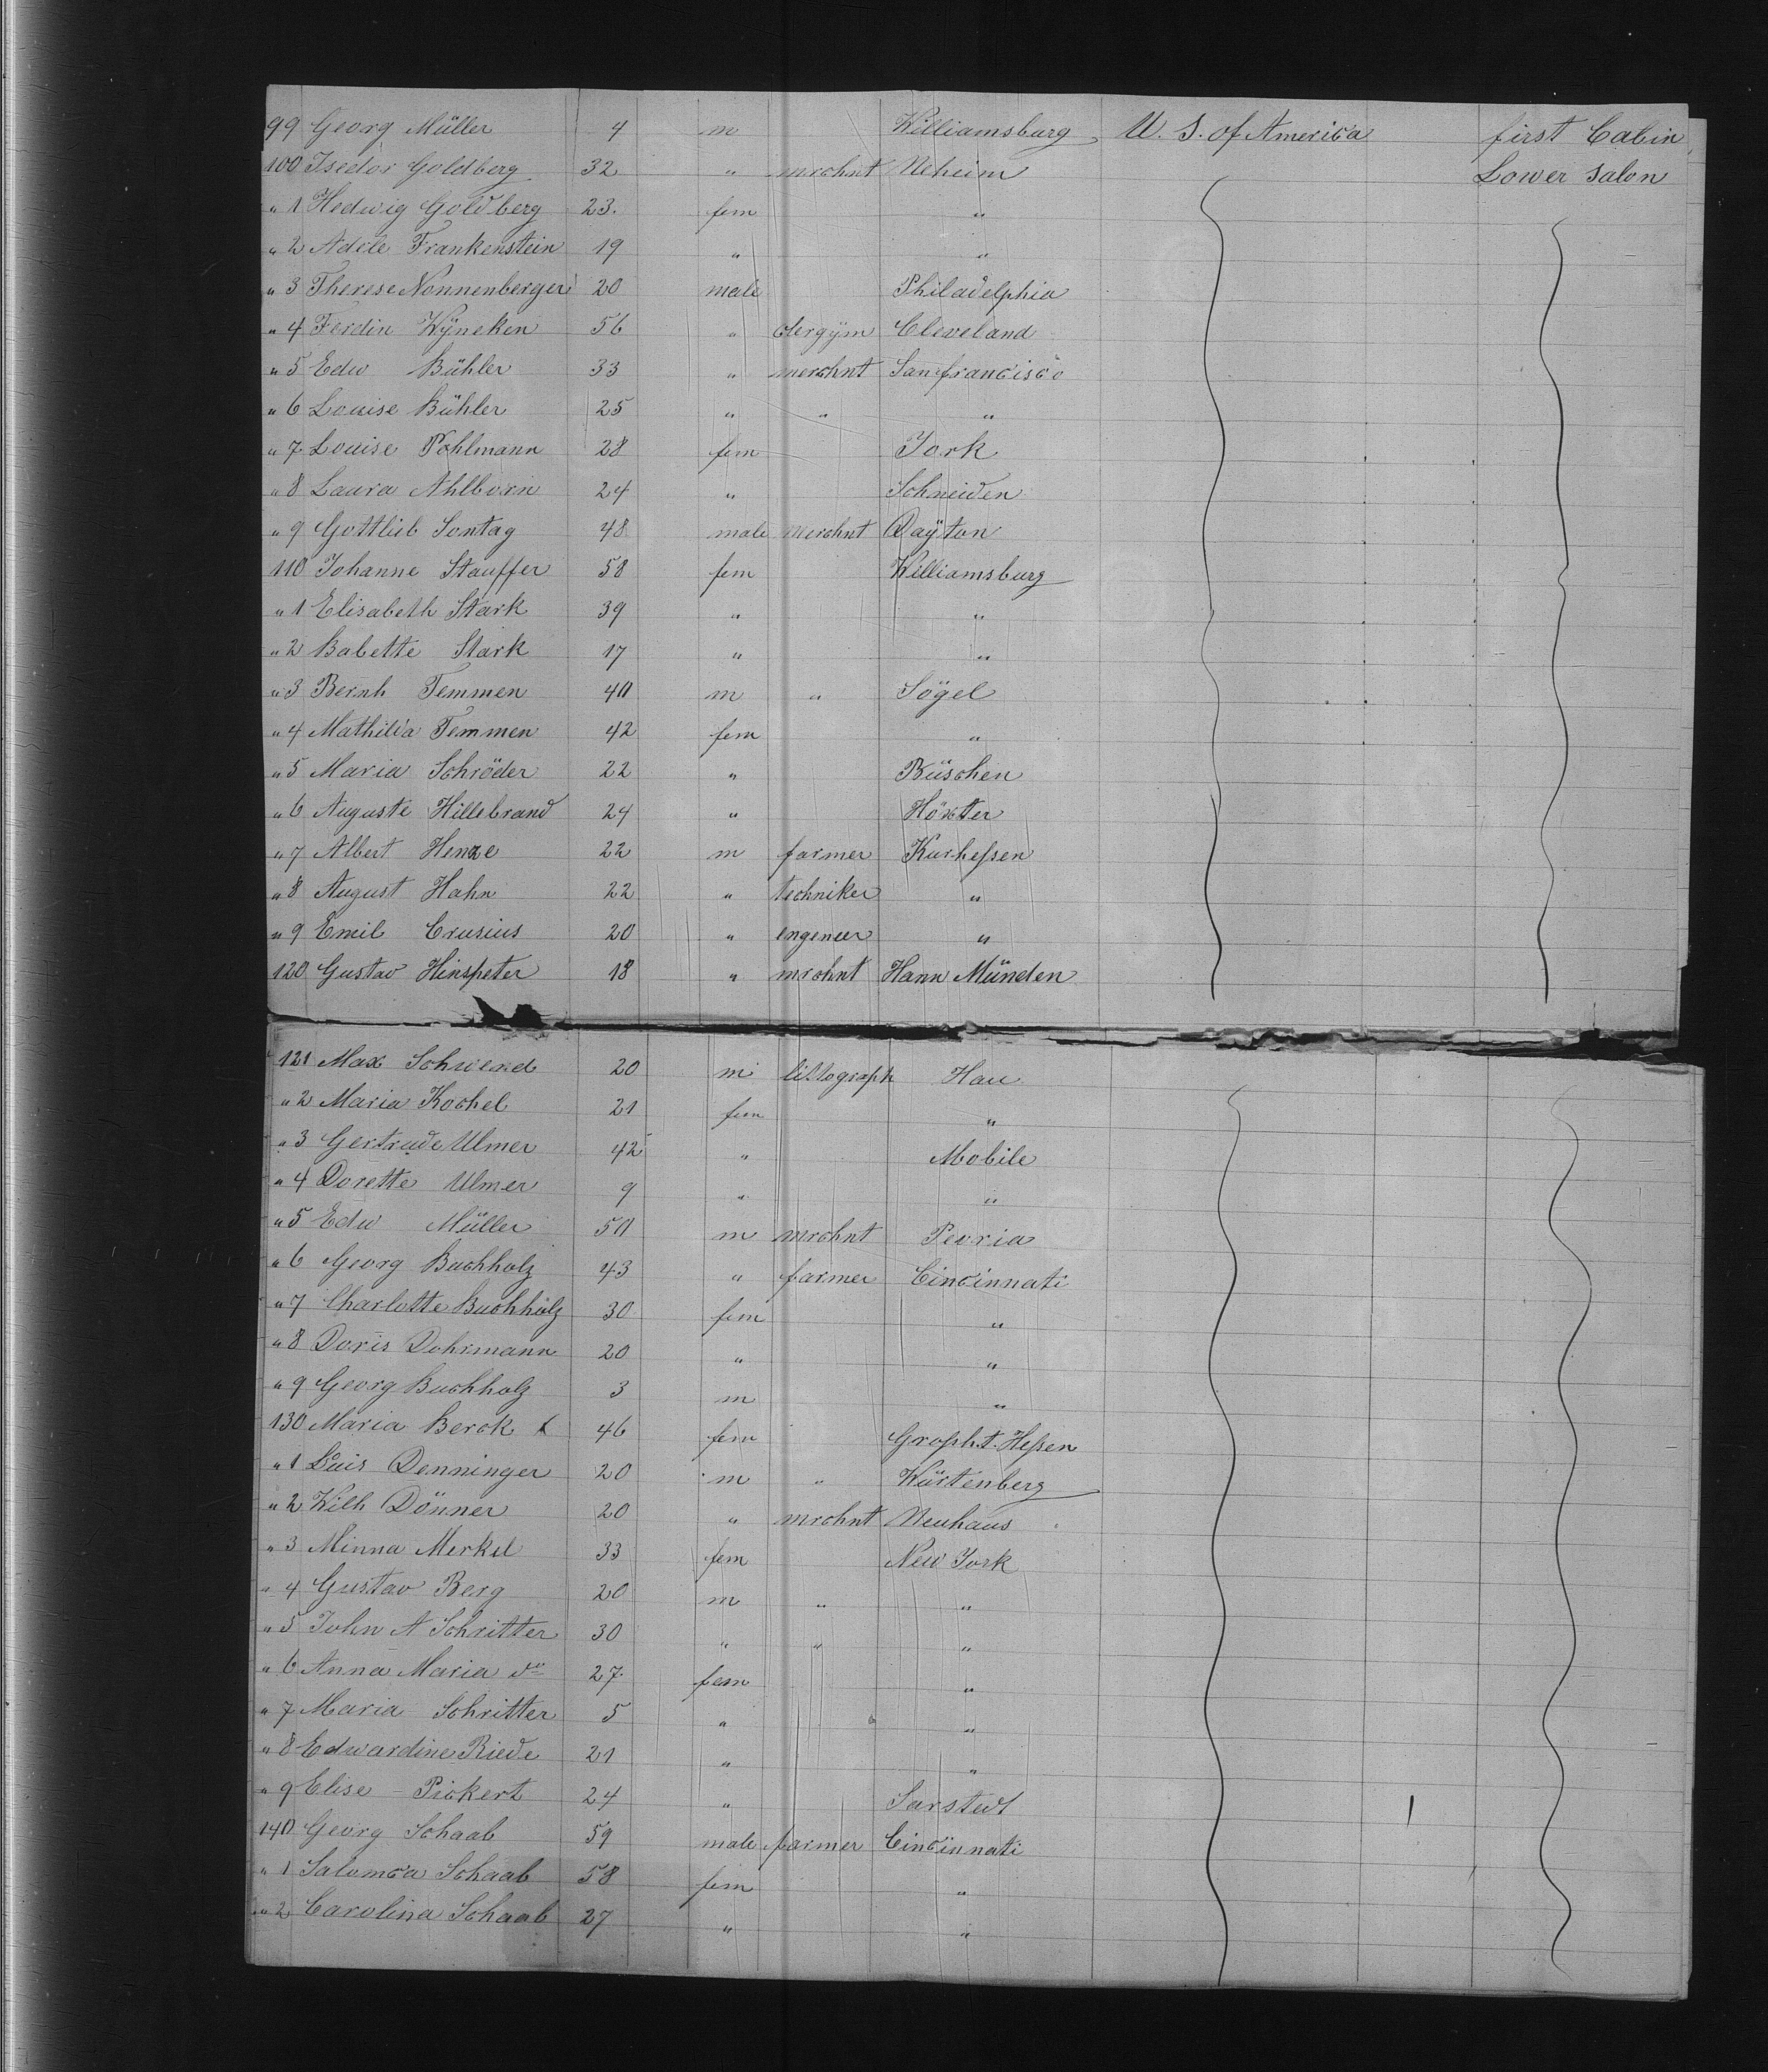 99 Georg Müller 4 m Williamsburg U. S. of America first Cabin
100 Isedor Goldberg 32 " mrchnt Neheim Lower Salon
" 1 Hedwig Goldberg 23. fem "
" 2 Adele Frankenstein 19 " "
" 3 Therese Nonnenberger 20 male Philadelphia
" 4 Ferdin Wÿneken 56 " clergÿm Cleveland
" 5 Edw Bühler 33 " merchnt Sanfrancisco
" 6 Louise Bühler 25 " " "
" 7 Louise Pohlmann 28 fem York
" 8 Laura Ahlborn 24 " Schneiden
" 9 Gottlieb Sontag 48 male merchnt Daÿton
110 Johanne Stauffer 58 fem Williamsburg
" 1 Elisabeth Stark 39 " "
" 2 Babette Stark 17 " "
" 3 Bernh Temmen 40 m " Sögel
" 4 Mathilda Temmen 42 fem "
" 5 Maria Schröder 22 " Büschen
" 6 Auguste Hillebrand 24 " Höxter
" 7 Albert Henze 22 m farmer Kurheſsen
" 8 August Hahn 22 " techniker "
" 9 Emil Crusius 20 " engeneer "
120 Gustav Hinspeter 18 " mrchnt Hann Münden
121 Max Schwend 20 m littograph Hau
" 2 Maria Kochel 21 fem "
" 3 Gertrude Ulmer 42 " Mobile
" 4 Dorette Ulmer 9 " "
" 5 Edw Müller 50 m mrchnt Peoria
" 6 Georg Buchholz 43 " farmer Cincinnati
" 7 Charlotte Buchholz 30 fem "
" 8 Doris Dohrmann 20 " "
" 9 Georg Buchholz 3 m "
130 Maria Berck x 46 fem Groſsh.t. Heſsen
" 1 Luis Denninger 20 m " Würtenberg
" 2 Wilh Dönner 20 " mrchnt Neuhaus
" 3 Minna Merkel 33 fem New York
" 4 Gustav Berg 20 m " "
" 5 John A Schritter 30 " " "
" 6 Anna Maria do 27 fem "
" 7 Maria Schritter 5 " "
" 8 Edwardine Riede 21 " "
" 9 Elise Pickert 24 " Sarstedt
140 Georg Schaab 59 male farmer Cincinnati
" 1 Salomea Schaab 58 fem "
" 2 Carolina Schaab 27 " "